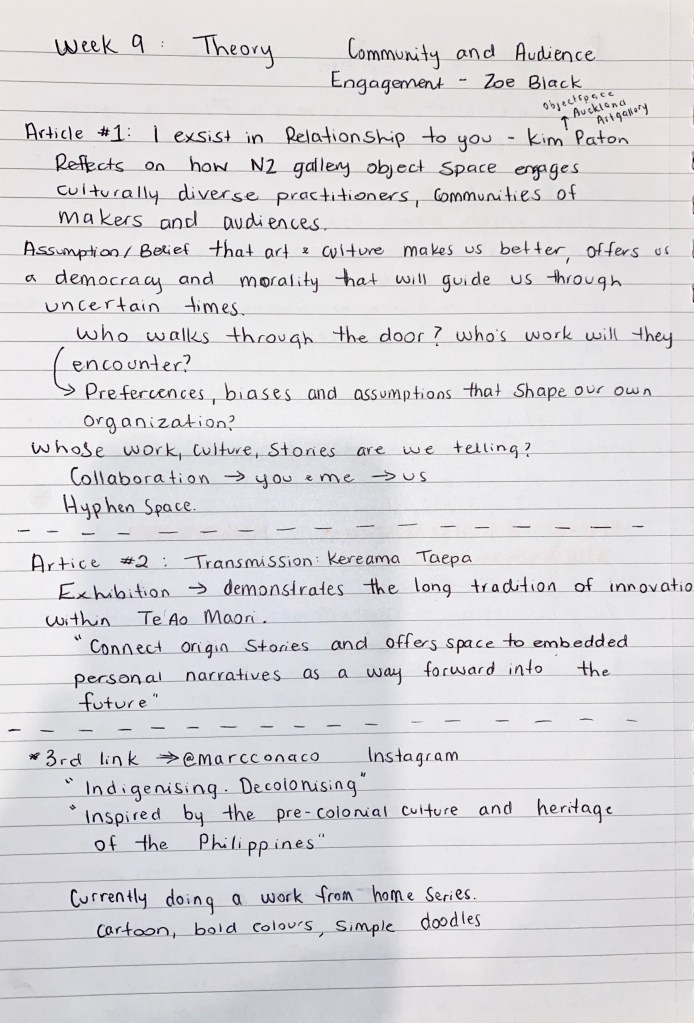 Week 9 : Theory Community and Audience
Engagement - Zoe Black
objectspace
↑ Auckland
Artgallery
Article #1: I exsist in Relationship to you - Kim Paton
Reflects on how NZ gallery object space engages
culturally diverse practitioners, communities of
makers and audiences.
Assumption/Belief that art & culture makes us better, offers us
a democracy and morality that will guide us through
uncertain times.
Who walks through the door? who's work will they
encounter?
→ Prefercences, biases and assumptions that shape our own
organization?
Whose work, culture, stories are we telling?
Collaboration → you & me → us
Hyphen Space.
Artice #2 : Transmission: Kereama Taepa
Exhibition → demonstrates the long tradition of innovatio
within Te'Ao Maori.
"Connect origin stories and offers space to embedded
personal narratives as a way forward into the
future"
*3rd link → @marcconaco Instagram
"Indigenising. Decolonising"
"Inspired by the pre-colonial culture and heritage
of the Philippines"
Currently doing a work from home series.
cartoon, bold colours, simple doodles